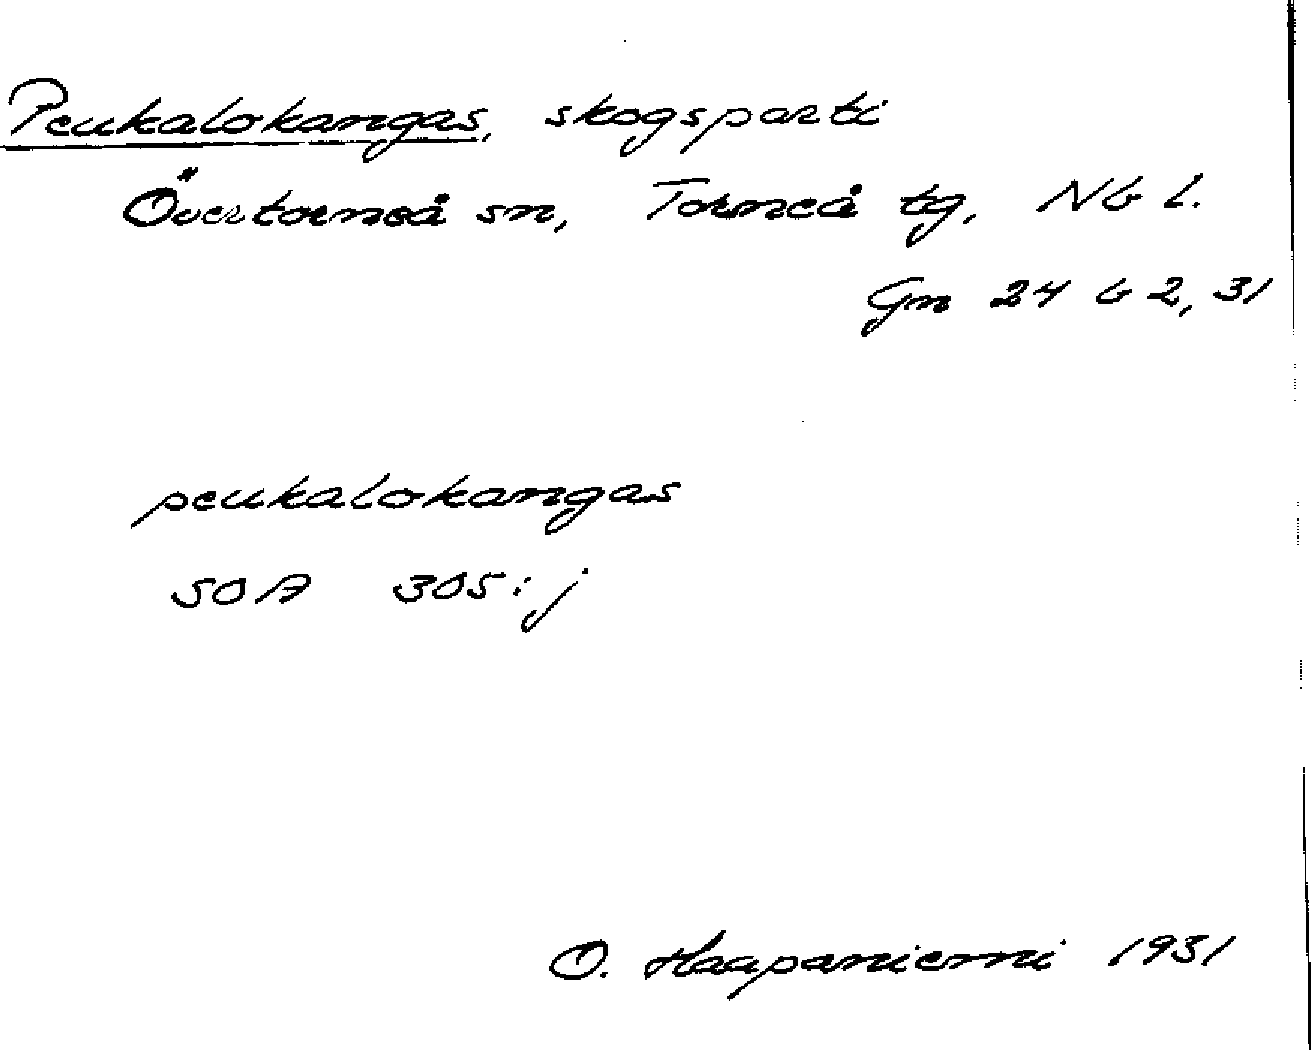 Peukalokangas, skogsparti
Övertorneå sn, Torneå tg, Nb l.
Gn 24 b 2, 31
peukalokangas
SOA 305:j
O. Haapaniemi 1931